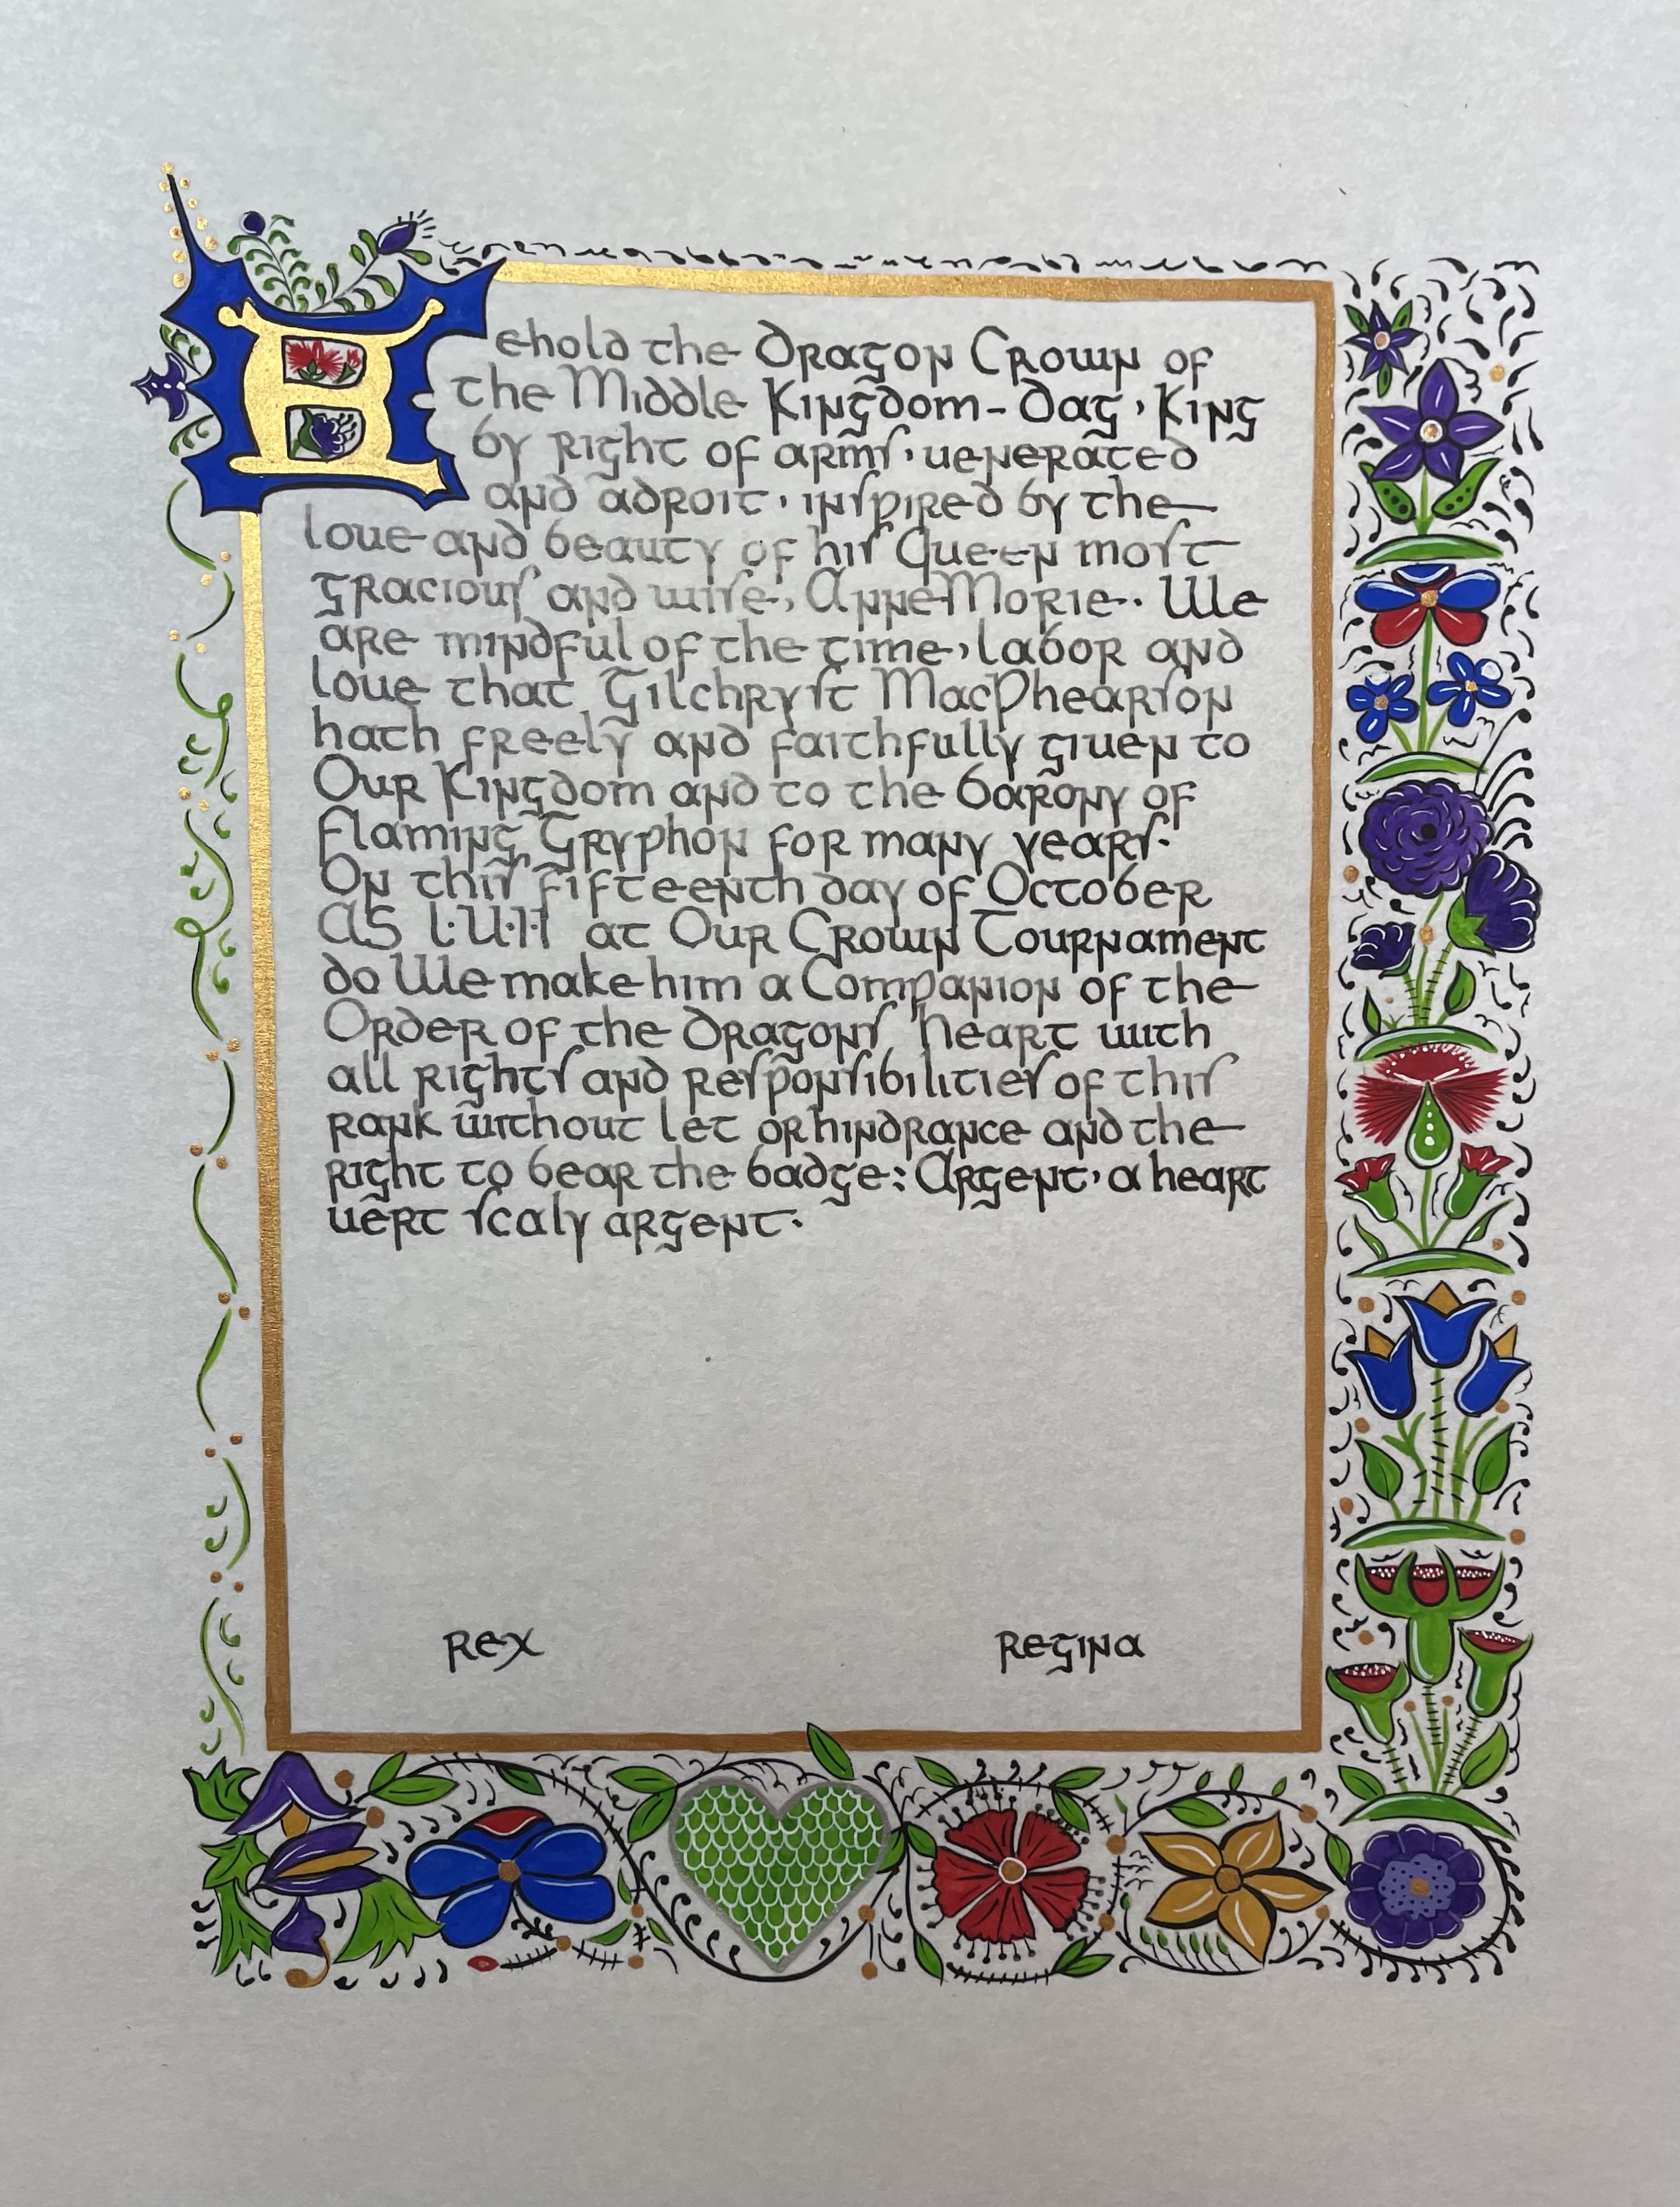 Behold the Dragon Crown of
the Middle Kingdom - Dag, King
by right of arms, venerated
and adroit, inspired by the
love and beauty of his Queen most
gracious and wise, AnneMorie. We
are mindful of the time, labor and
love that Gilchryst MacPhearson
hath freely and faithfully given to
Our Kingdom and to the Barony of
Flaming Gryphon for many years.
On this fifteenth day of October
AS L·V·I·I at Our Crown Tournament
do We make him a Companion of the
Order of the Dragons Heart with
all rights and responsibilities of this
rank without let or hindrance and the
right to bear the badge: Argent, a heart
vert scaly argent.
Rex
Regina